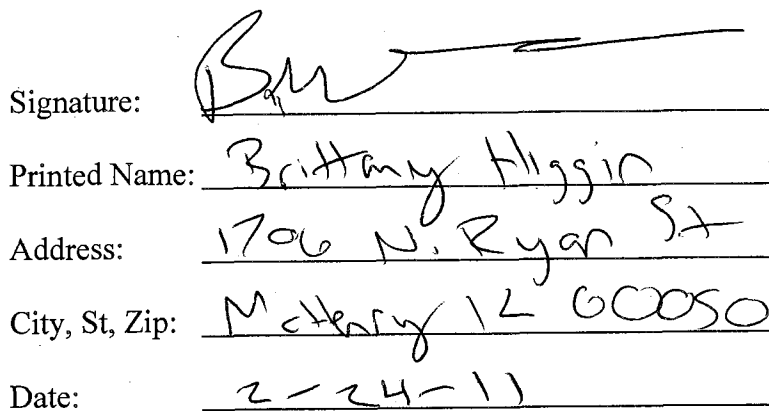 Signature:
Printed Name: Brittany Higgin
Address: 1706 N. Ryan St
City, St, Zip: McHenry IL 60050
Date: 2-24-11